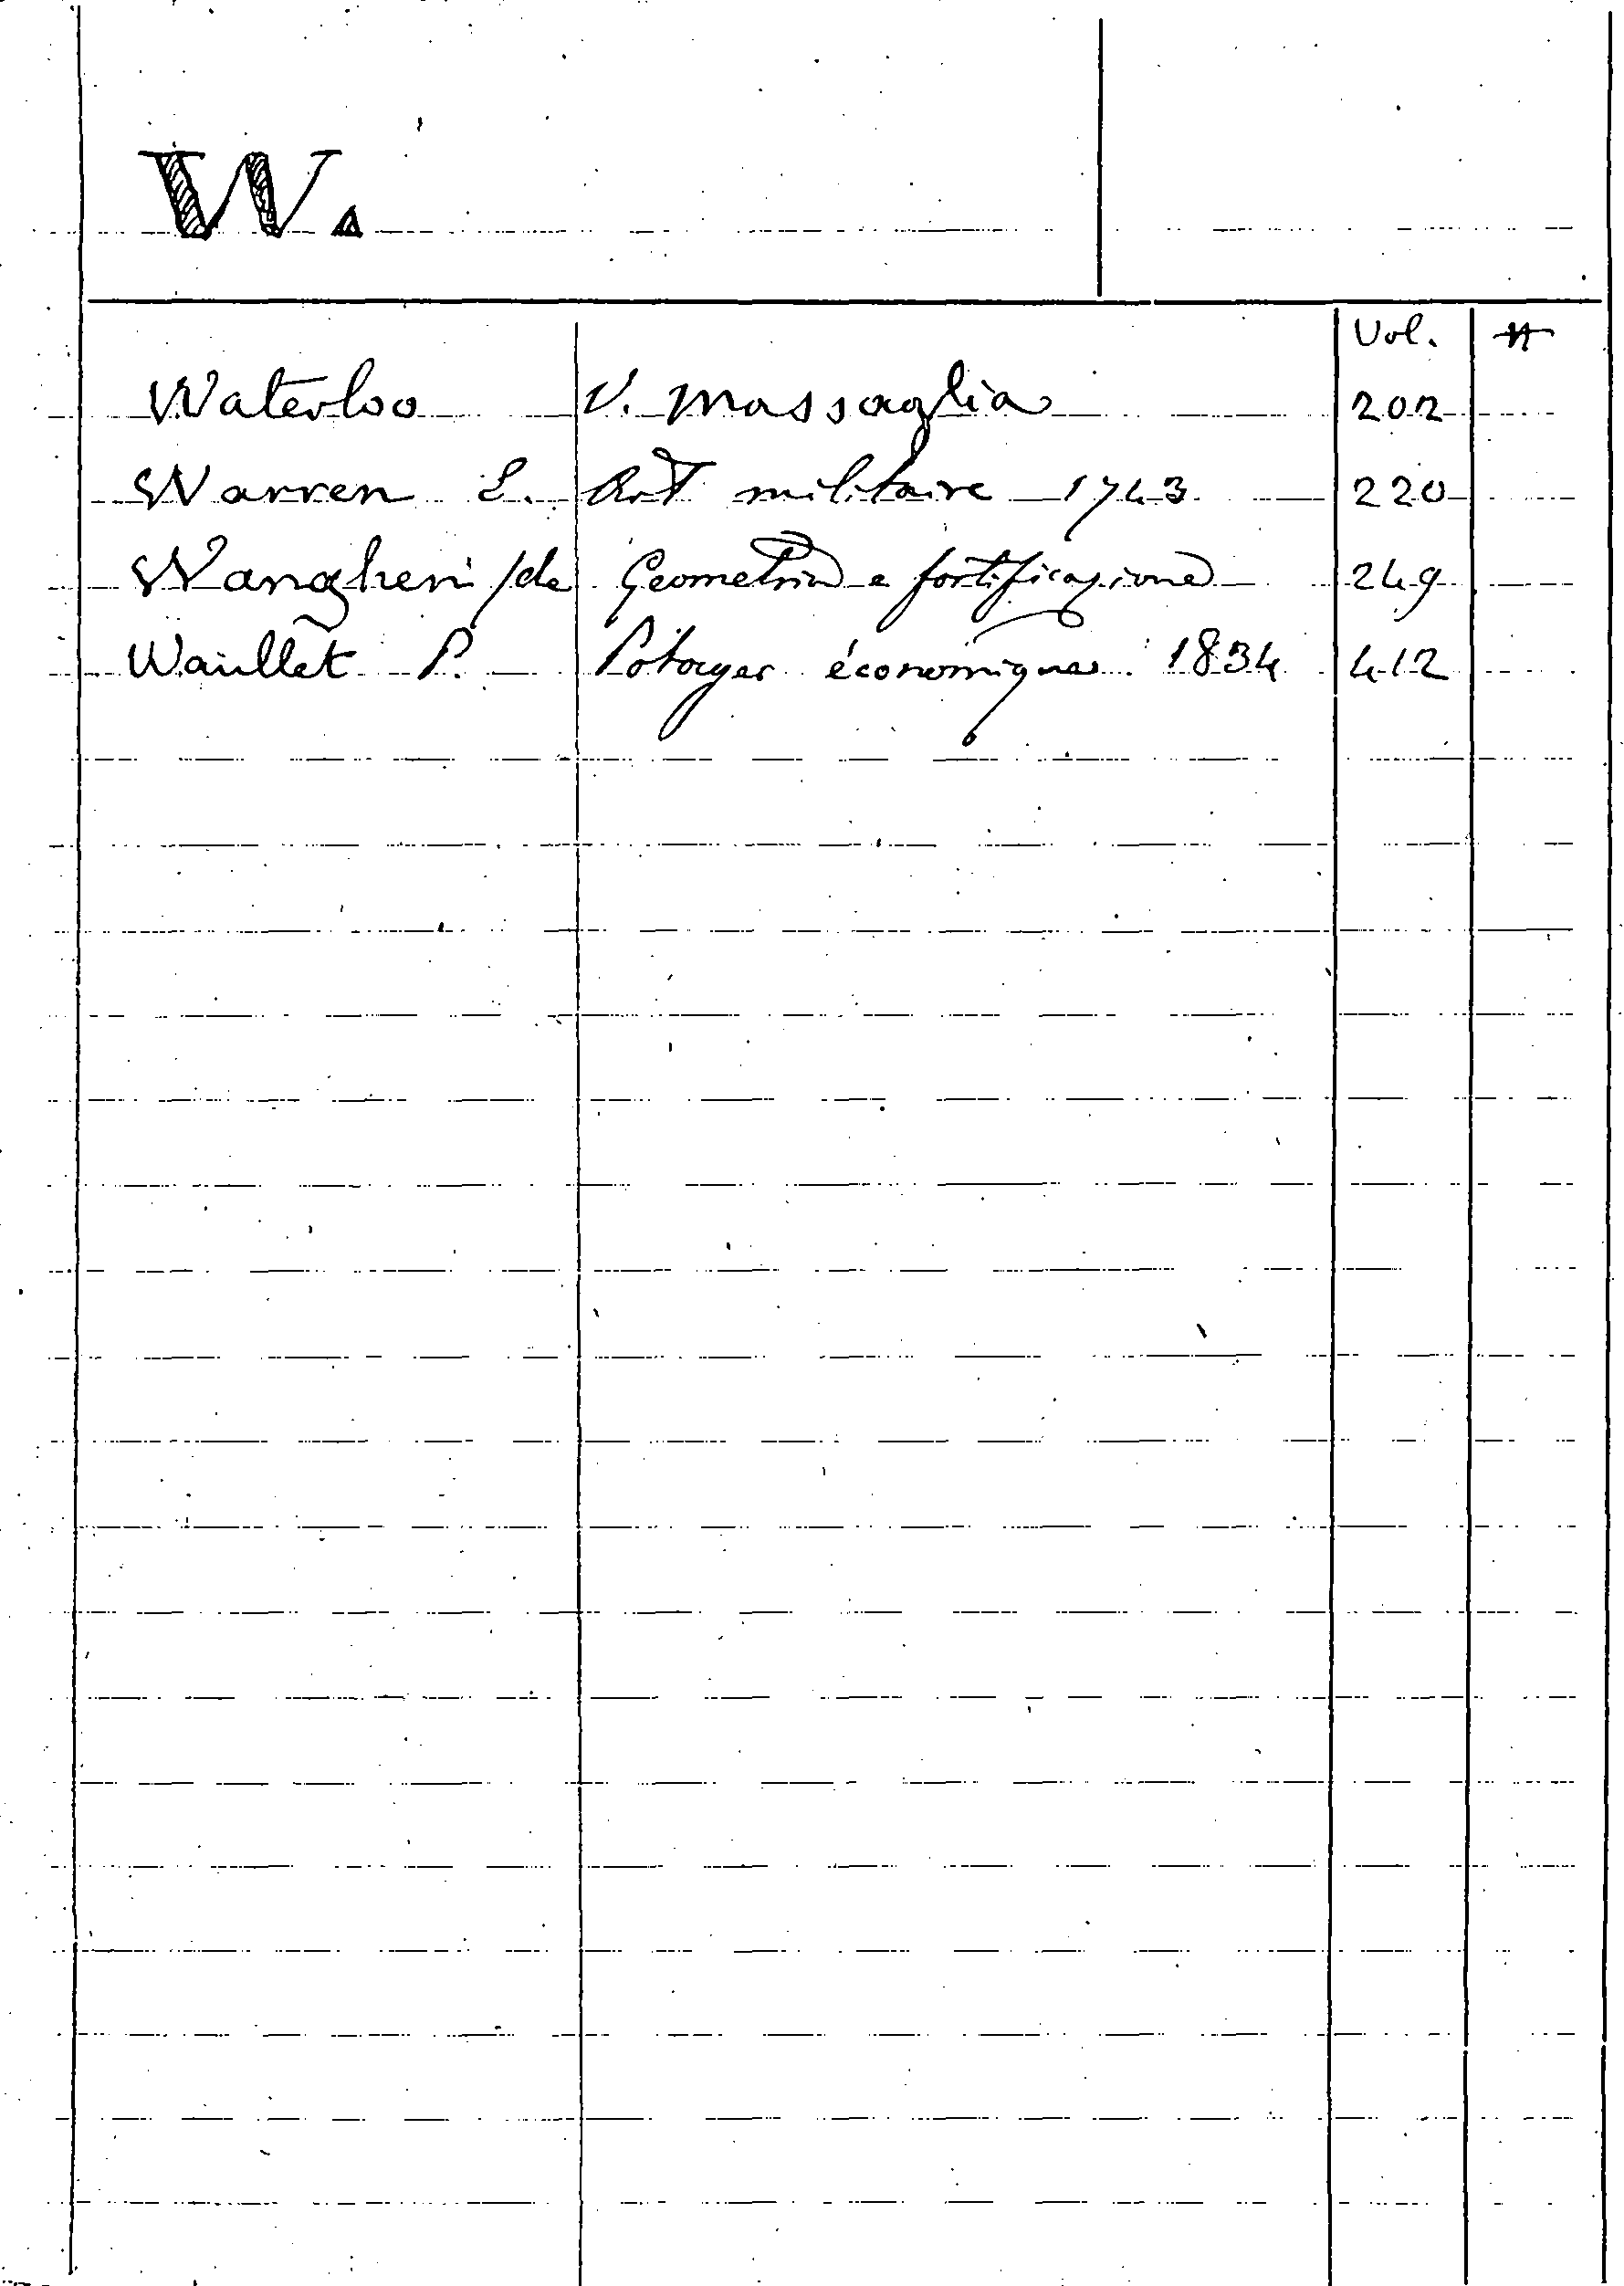 W.
Vol. n
Waterloo V. Massaglia 202
Warren L. Art militaire 1743 220
Wangheri /de Geometria e fortificazione 249
Waillet P. Potager économique 1834 412